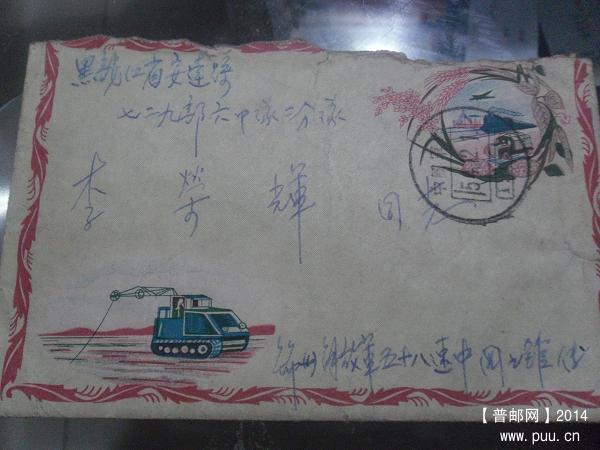 黑龙江省安达
七二九部六中队二分队
李荣辉 同志
锦州解放军五十八速中
【普邮网】2014
www.puu.cn